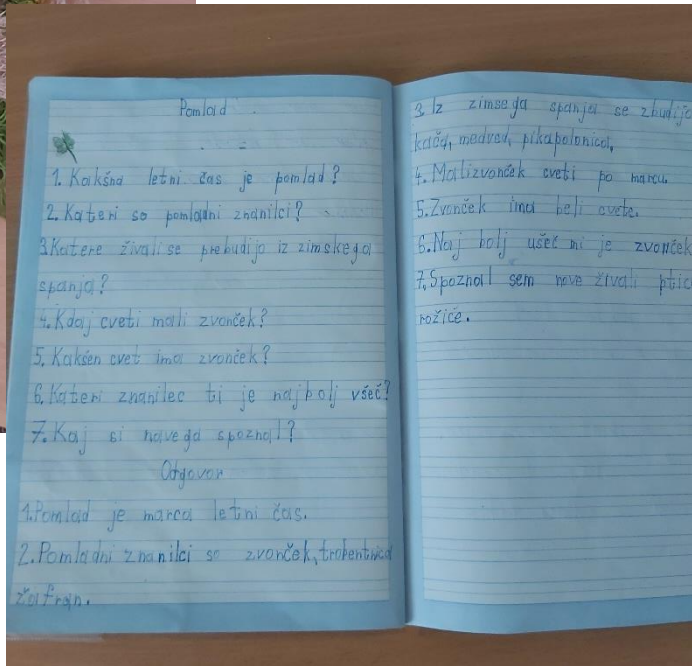 Pomlad
1. Kakšna letni čas je pomlad?
2. Kateri so pomladni znanilci?
3. Katere živali se prebudijo iz zimskega
spanja?
4. Kdaj cveti mali zvonček?
5. Kakšen cvet ima zvonček?
6. Kateri znanilec ti je najbolj všeč?
7. Kaj si navega spoznal?
Odgovor
1. Pomlad je marca letni čas.
2. Pomladni znanilci so zvonček, trobentica
žafran.
3. Iz zimsega spanja se zbudijo
kača, medved, pikapolonica,
4. Malizvonček cveti po marcu.
5. Zvonček ima beli cvete.
6. Naj bolj ušeč mi je zvonček
7. Spoznal sem nove živali ptic
rožice.